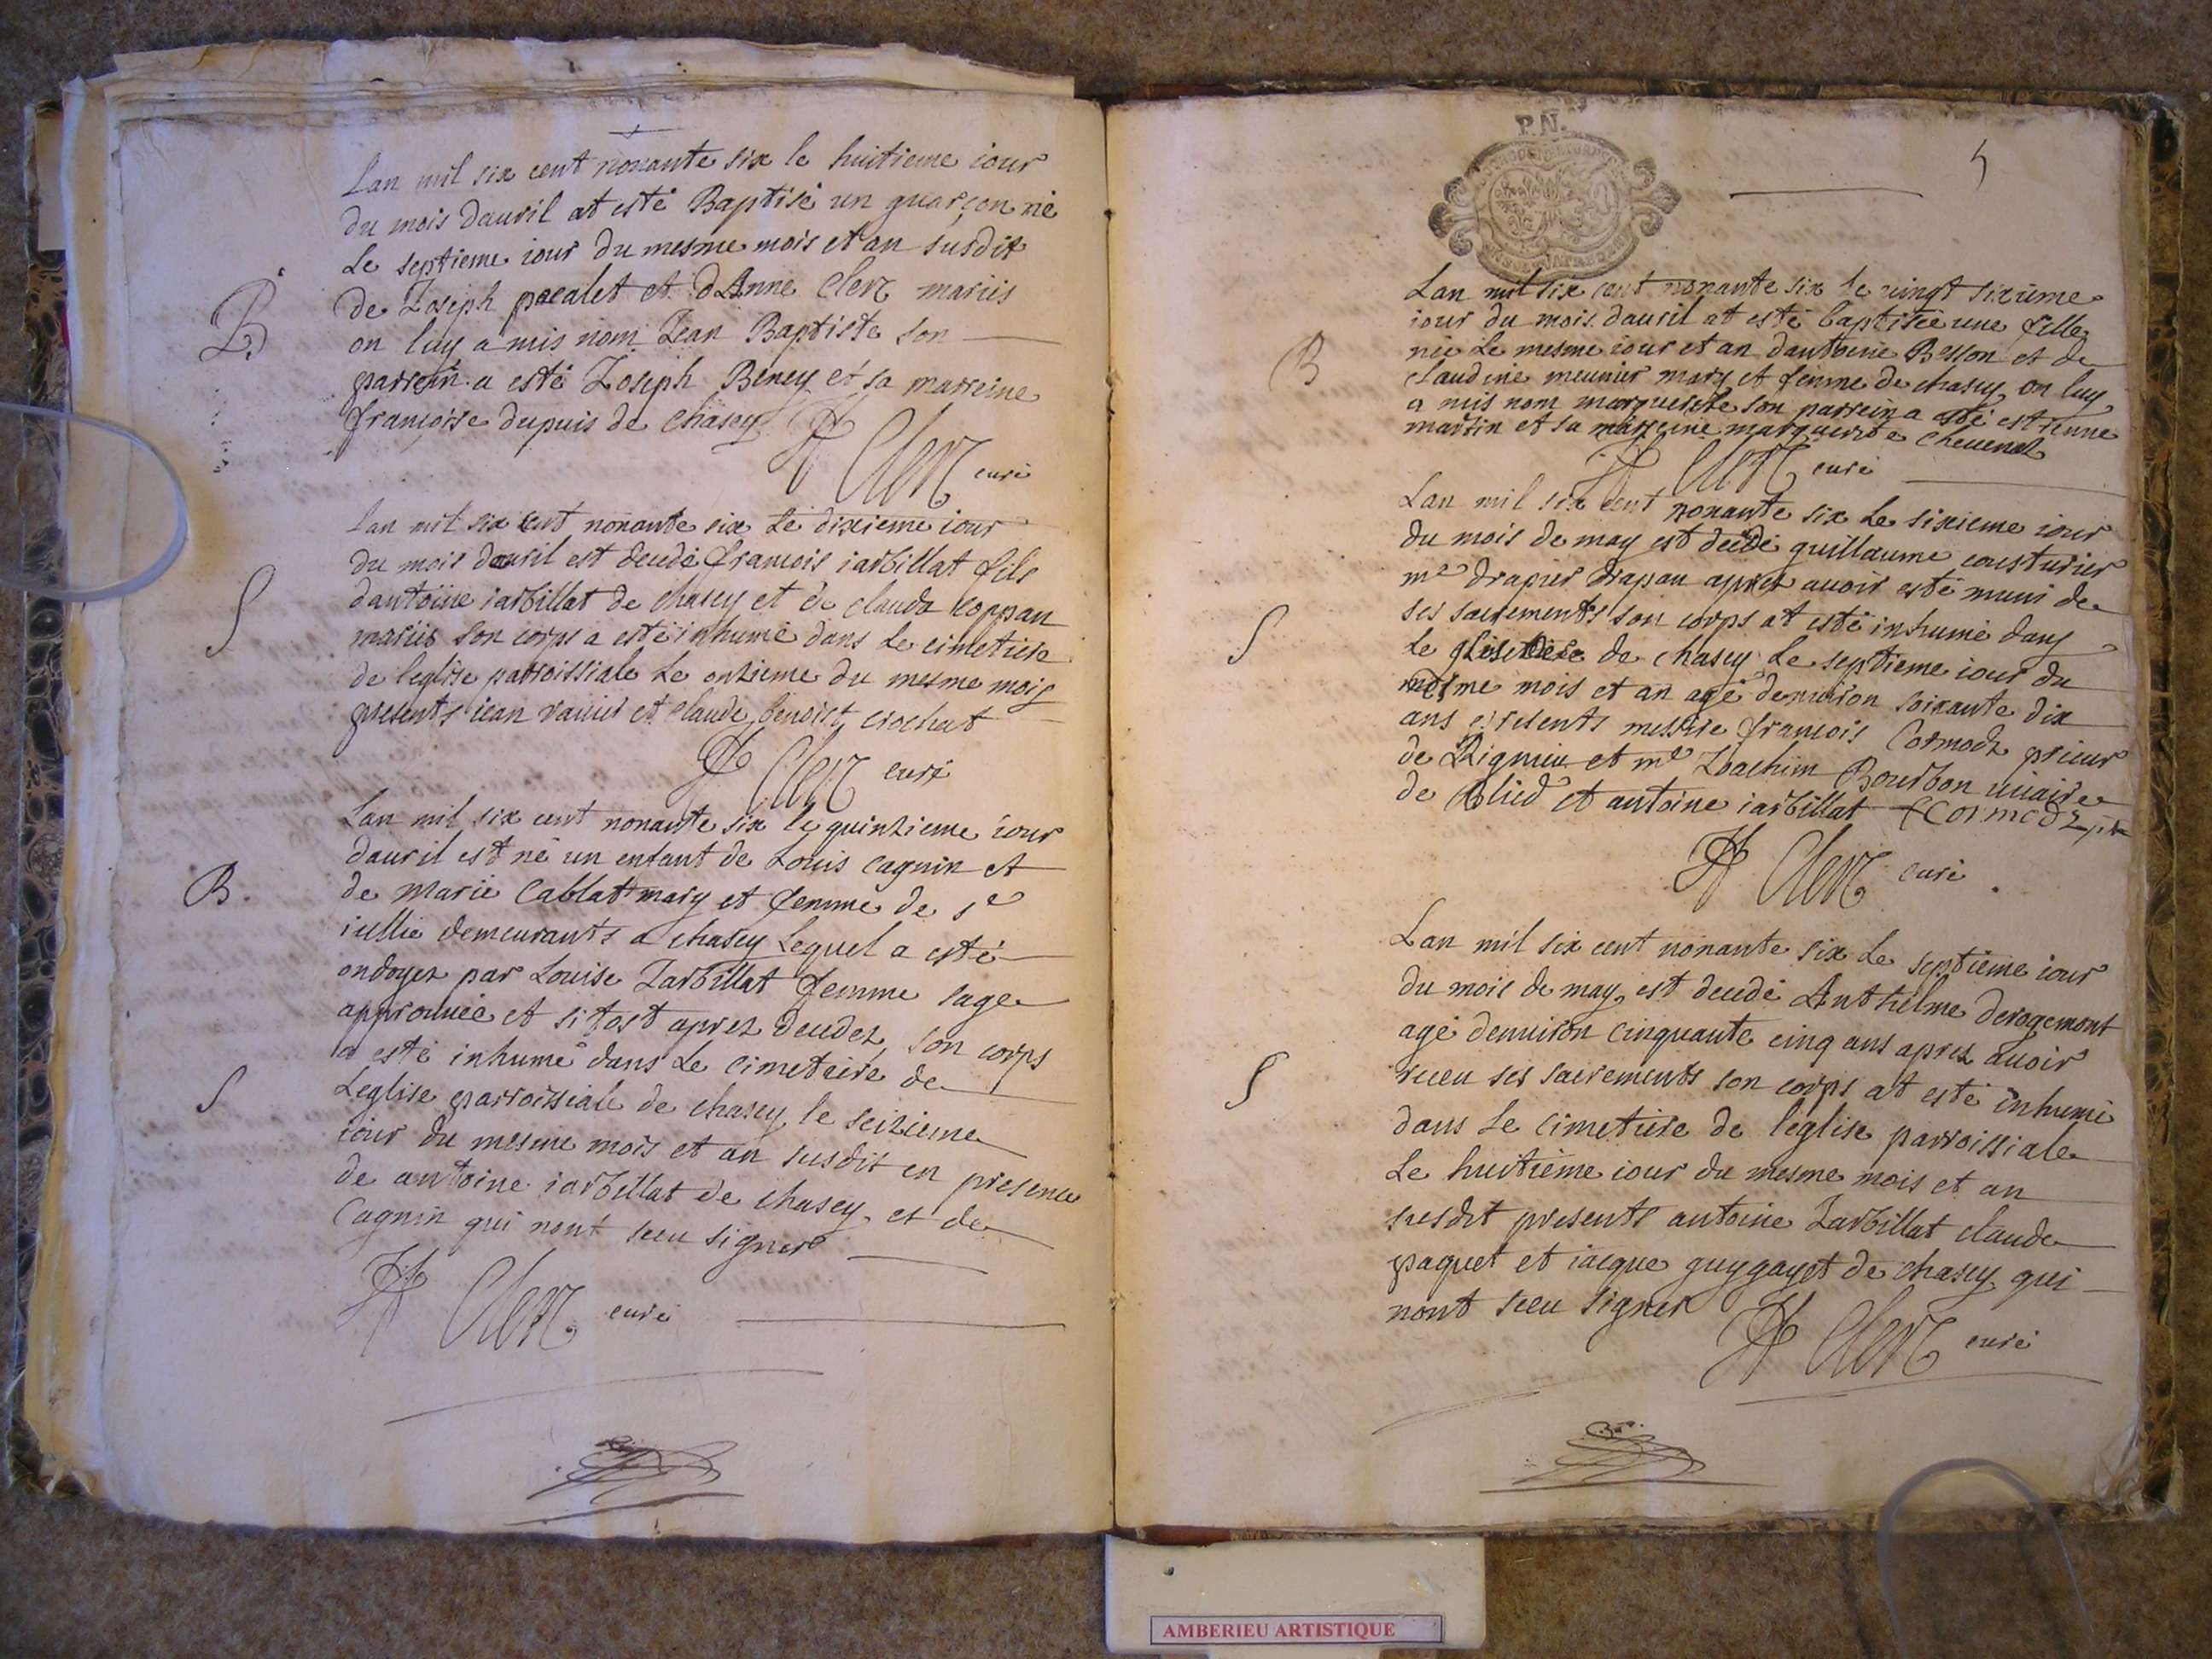 Lan mil six cent nonante six le huitieme iour
du mois dauril at esté Baptisé un guarçon né
Le septieme iour du mesme mois et an susdit
B
de Joseph pacalet et dAnne Clerc mariés
on luy a mis nom Jean Baptiste son
parrein a esté Joseph Biney et sa marreine
françoise dupuis de chasey
Clerc curé
Lan mil six cent nonante six Le dixieme iour
du mois dauril est decedé francois iarbillat fils
S
dantoine iarbillat de chasey et de clauda coppan
mariés son corps a esté inhumé dans Le cimetiere
de leglise parroissiale Le onzieme du mesme mois
presents iean et claude benoist crochat
Clerc curé
Lan mil six cent nonante six le quinzieme iour
dauril est né un enfant de Louis cagnin et
B.
de Marie Cablat mary et femme de st
iullie demeurants a chasey Lequel a esté
ondoyez par Louise Jarbillat femme sage
approuuée et sitost aprez decedez son corps
a esté inhumé dans Le cimetiere de
S
Leglise parroissiale de chasey le seizieme
iour du mesme mois et an susdit en presence
de antoine iarbillat de chasey et de
Cagnin qui nont sceu signer
Clerc curé
P.N.
5
Lan mil six cent nonante six le vingt sixieme
iour du mois dauril at esté baptisée une fille
née Le mesme iour et an dantoine Besson et de
B
claudine meunier mary et femme de chasey on luy
a mis nom marguerite son parrein a esté estienne
martin et sa marreine marguerite cheuenet
Clerc curé
Lan mil six cent nonante six Le sixieme iour
du mois de may est decedé guillaume cousturier
me drapier drapan aprez auoir esté muni de
ses sacrements son corps at esté inhumé dans
S
Le de chasey Le septieme iour du
mesme mois et an agé denuiron soixante dix
ans presents messire francois Cormodz prieur
de Rignieu et me Joachim Bourbon uicaire
de Blied et antoine iarbillat Cormodz ptr
Clerc curé
Lan mil six cent nonante six Le septieme iour
du mois de may est decedé Anthelme derogemont
agé denuiron cinquante cinq ans aprez auoir
S
receu ses sacrements son corps at esté inhumé
dans Le cimetiere de leglise parroissiale
Le huitieme iour du mesme mois et an
susdit presents antoine Jarbillat claude
paquet et iacque guygayet de chasey qui
nont sceu signer
Clerc curé
AMBERIEU ARTISTIQUE